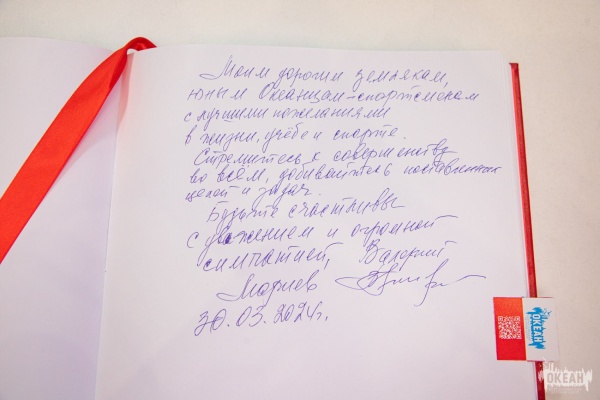 Моим дорогим землякам,
юным Океанцам-спортсменам
с лучшими пожеланиями
в жизни, учёбе и спорте.
Стремитесь к совершенству
во всём, добивайтесь поставленных
целей и задач.
Будьте счастливы
с уважением и огромной
симпатией, Валерий
30.03.2024г.
ОКЕАН
ОКЕАН